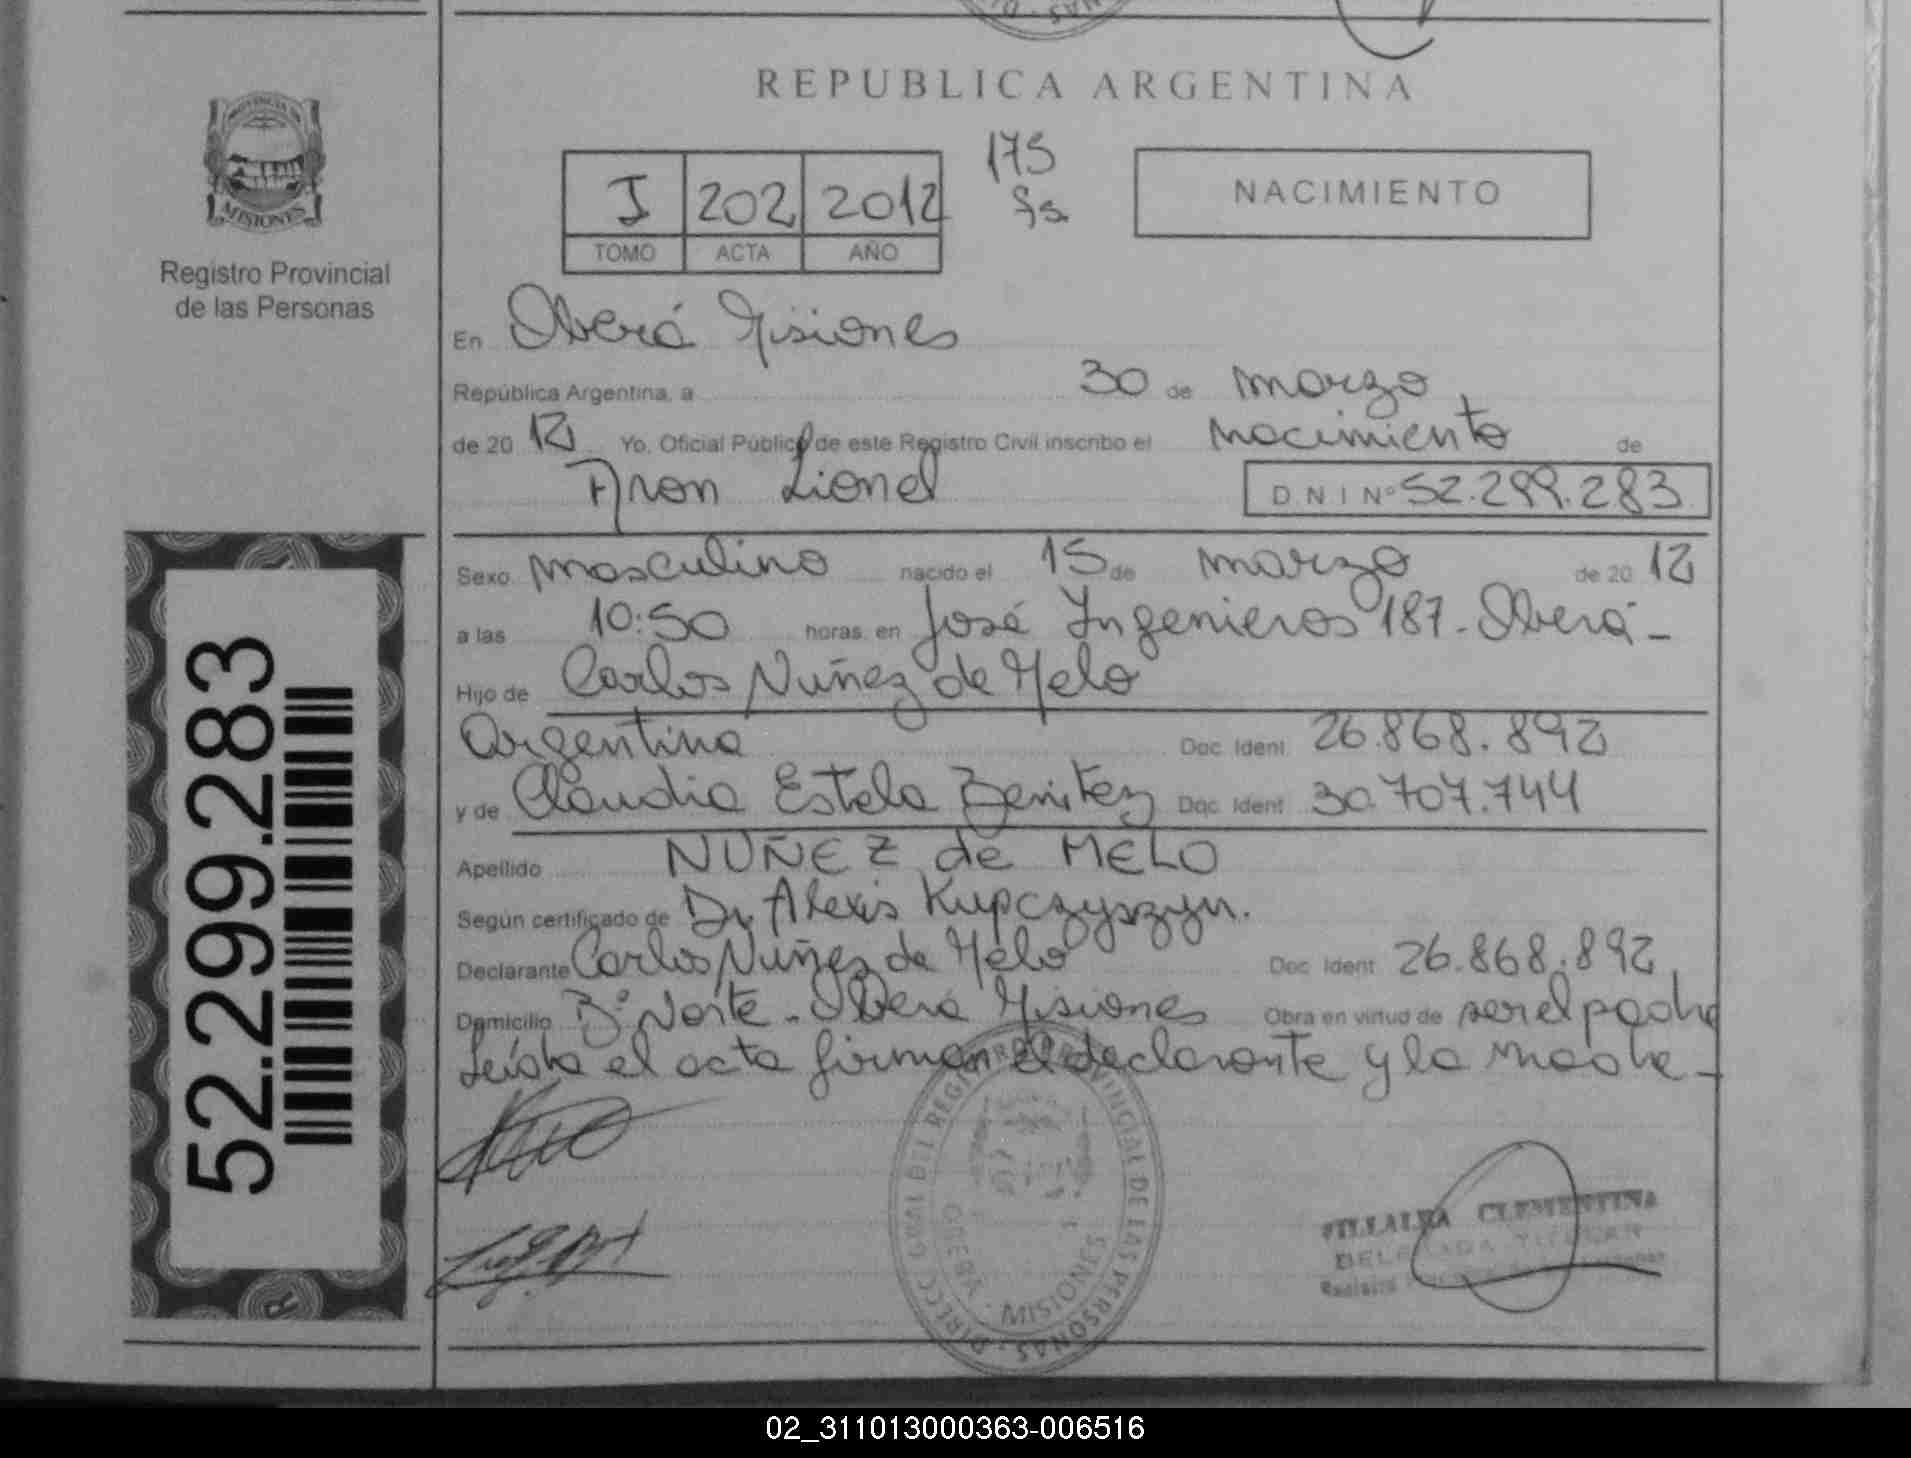 REPUBLICA ARGENTINA
PROVINCIA DE
MISIONES
Registro Provincial
de las Personas
I 202 2012
TOMO ACTA AÑO
175
fs
NACIMIENTO
En Oberá Misiones
República Argentina, a 30 de marzo
de 2012 Yo, Oficial Público de este Registro Civil inscribo el nacimiento de
Aron Lionel D N I Nº 52.299.283
Sexo masculino nacido el 15 de marzo de 2012
a las 10:50 horas, en José Ingenieros 187 - Oberá -
Hijo de Carlos Nuñez de Melo
Argentina Doc. Ident. 26.868.892
y de Claudia Estela Benitez Doc. Ident. 30.707.744
Apellido NUÑEZ de MELO
Según certificado de Dr. Alexis Kupczyszyn.
Declarante Carlos Nuñez de Melo Doc. Ident. 26.868.892
Domicilio Bº Norte - Oberá Misiones Obra en virtud de ser el padre
Leída el acta firman el declarante y la madre -
52.299.283
DIRECC GRAL DEL REGISTRO PROVINCIAL DE LAS PERSONAS
OBERA
MISIONES
VILLALBA CLEMENTINA
DELEGADA TITULAR
02_311013000363-006516